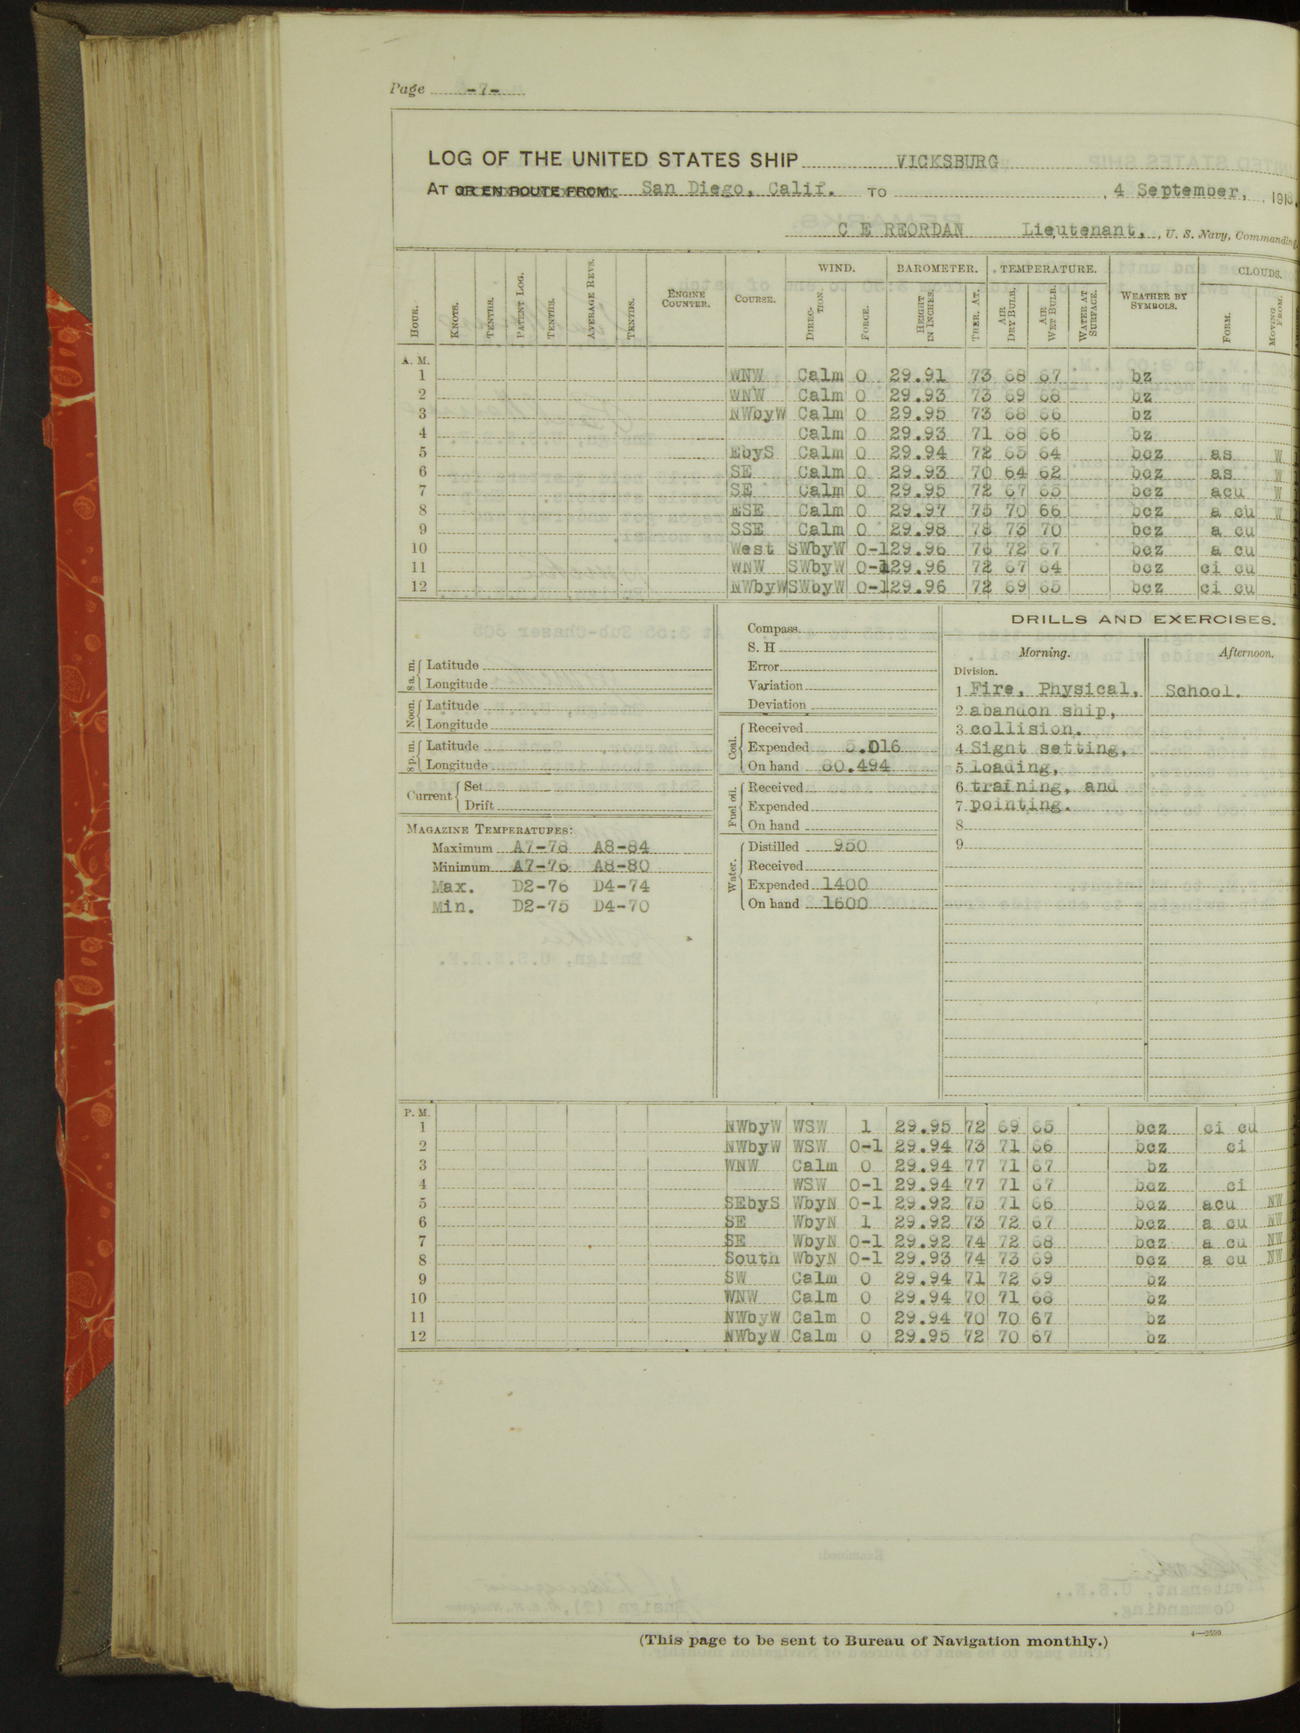 Page -7-
LOG OF THE UNITED STATES SHIP VICKSBURG
AT OR EN ROUTE FROM San Diego, Calif. TO , 4 September, , 1918,
C E REORDAN Lieutenant, , U. S. Navy, Commanding
HOUR. KNOTS. TENTHS. PATENT LOG. TENTHS. AVERAGE REVS. TENTHS. ENGINE COUNTER. COURSE. WIND. DIRECTION. FORCE. BAROMETER. HEIGHT IN INCHES. THER. AT. TEMPERATURE. AIR DRY BULB. AIR WET BULB. WATER AT SURFACE. WEATHER BY SYMBOLS. CLOUDS. FORM. MOVING FROM.
A. M.
1 WNW Calm 0 29.91 73 68 67 bz
2 WNW Calm 0 29.93 73 69 68 bz
3 NWbyW Calm 0 29.95 73 68 66 bz
4 Calm 0 29.93 71 68 66 bz
5 EbyS Calm 0 29.94 72 65 64 bcz as W
6 SE Calm 0 29.93 70 64 62 bcz as W
7 SE Calm 0 29.95 72 67 65 bcz acu W
8 ESE Calm 0 29.97 75 70 66 bcz a cu W
9 SSE Calm 0 29.98 78 73 70 bcz a cu
10 West SWbyW 0-1 29.96 76 72 67 bcz a cu
11 WNW SWbyW 0-1 29.96 72 67 64 bcz ci cu
12 NWbyW SWbyW 0-1 29.96 72 69 65 bcz ci cu
8 a. m. Latitude
Longitude
Noon. Latitude
Longitude
8 p. m. Latitude
Longitude
Current Set
Drift
MAGAZINE TEMPERATURES:
Maximum A7-78 A8-84
Minimum A7-76 A8-80
Max. D2-76 D4-74
Min. D2-75 D4-70
Compass
S. H
Error
Variation
Deviation
Coal. Received
Expended 5.016
On hand 60.494
Fuel oil. Received
Expended
On hand
Water. Distilled 950
Received
Expended 1400
On hand 1600
DRILLS AND EXERCISES.
Morning. Afternoon.
Division.
1 Fire, Physical, School.
2 abandon ship,
3 collision.
4 Sight setting,
5 loading,
6 training, and
7 pointing.
8
9
P. M.
1 NWbyW WSW 1 29.95 72 69 65 bcz ci cu
2 NWbyW WSW 0-1 29.94 73 71 66 bcz ci
3 WNW Calm 0 29.94 77 71 67 bz
4 WSW 0-1 29.94 77 71 67 bcz ci
5 SEbyS WbyN 0-1 29.92 75 71 66 bcz acu NW
6 SE WbyN 1 29.92 73 72 67 bcz a cu NW
7 SE WbyN 0-1 29.92 74 72 68 bcz a cu NW
8 South WbyN 0-1 29.93 74 73 69 bcz a cu NW
9 SW Calm 0 29.94 71 72 69 bz
10 WNW Calm 0 29.94 70 71 68 bz
11 NWbyW Calm 0 29.94 70 70 67 bz
12 NWbyW Calm 0 29.95 72 70 67 bz
(This page to be sent to Bureau of Navigation monthly.)